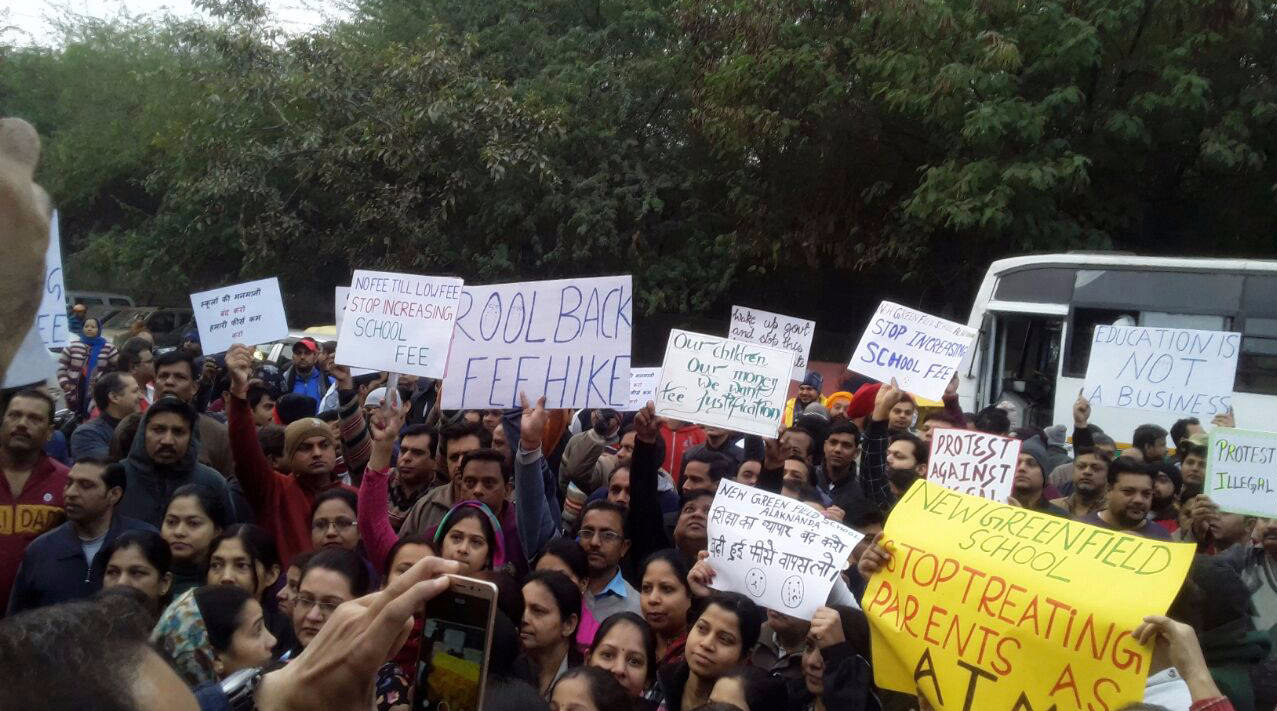 स्कूलों की मनमानी
बंद करो
हमारी फीस कम
करो
NO FEE TILL LOW FEE
STOP INCREASING
SCHOOL
FEE
ROOL BACK
FEE HIKE
Our children
Our money
we want
fee justification
Wake up govt
and stop this
STOP INCREASING
SCHOOL FEE
EDUCATION IS
NOT
A BUSINESS
PROTEST
AGAINST
PROTEST
ILLEGAL
NEW GREEN FIELD SCHOOL
ALAKNANDA
शिक्षा का व्यापार बंद करो
बढ़ी हुई फीस वापस लो
NEW GREENFIELD
SCHOOL
STOP TREATING
PARENTS AS
ATM